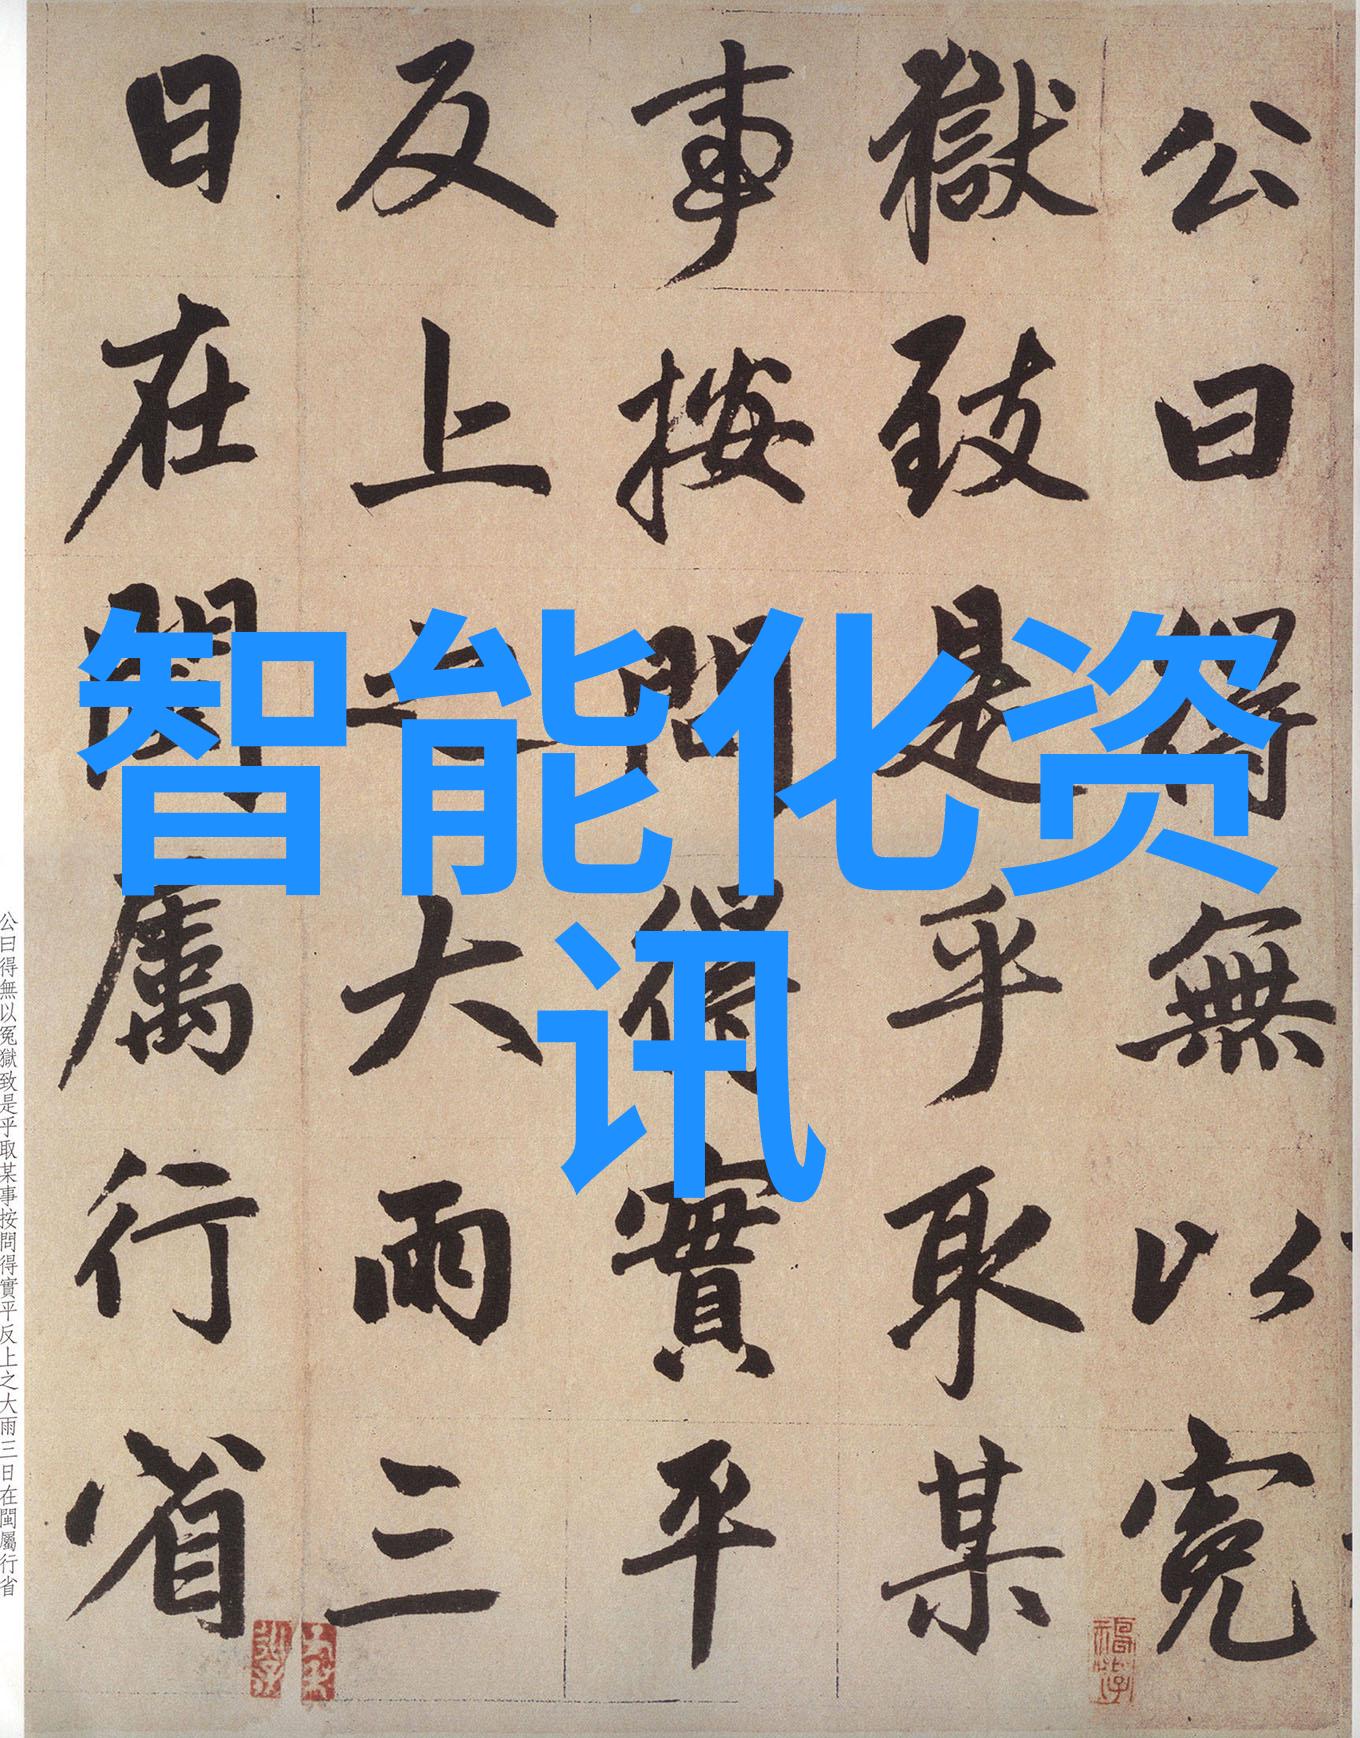 公曰得無以冤
獄致是乎取某
事按問得實平
反上之大雨三
日在閩屬行省
智能化资
讯
公曰得無以冤獄致是乎取某事按問得實平反上之大雨三日在閩屬行省